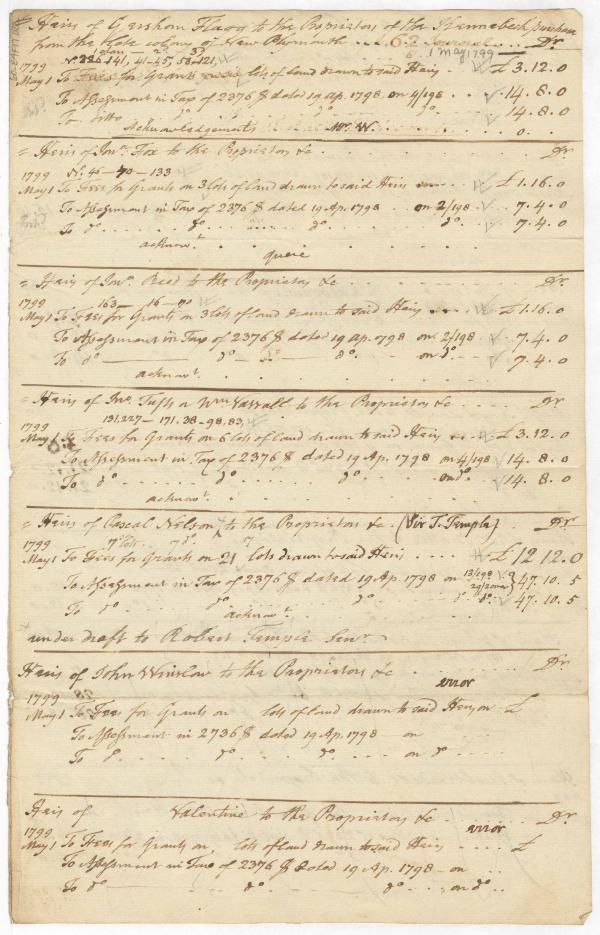 Heirs of Gershom Flagg to the Proprietors of the Kennebeck purchase
from the late colony of New Plymouth 1 May 1799 Dr
1799 No. 226-141, 41-45, 58-121,
May 1 To Fees for Grants lots of land drawn to said Heirs £ 3.12.0
To Assessment in Tax of 2376 $ dated 19 ap. 1798, on 4/198 14.8.0
To Ditto do do 14.8.0
acknowledgements Mr. W. 0.
= Heirs of Jno. Fox to the Proprietors &c Dr.
1799 No. 45-70-133
May 1 To Fees for Grants on 3 lots of land drawn to said Heirs £ 1.16.0
To Assessment in Tax of 2376 $ dated 19 ap. 1798 on 2/198 7.4.0
To do do do do 7.4.0
acknowt.
quere
= Heirs of Jno. Reed to the Proprietors &c Dr.
1799 163-16-70
May 1 To Fees for Grants on 3 lots of land drawn to said Heirs £ 1.16.0
To Assessment in Tax of 2376 $ dated 19 ap. 1798 on 2/198 7.4.0
To do do do do on do 7.4.0
acknowt.
= Heirs of Jno. Tufts & Wm Vassall to the Proprietors &c Dr
1799 131,227-171.38-98,83,
May 1 To Fees for Grants on 6 lots of land drawn to said Heirs £ 3.12.0
To Assessment in Tax of 2376 $ dated 19 Ap. 1798 on 4/198 14.8.0
To do do do on do 14.8.0
acknowt.
= Heirs of Pascal Nelson to the Proprietors &c. (Vir T. Temple) Dr
1799 7 lots 7 do. 7
May 1 To Fees for Grants on 21 lots drawn to said Heirs £ 12 12.0
To Assessment in Tax of 2376 $ dated 19 Ap. 1798 on 13/198 47.10.5
To do do do do 47.10.5
acknowt.
under draft to Robert Temple Senr
Heirs of John Winslow to the Proprietors &c Dr.
1799 error
May 1 To Fees for Grants on lots of land drawn to said Heirs on £
To Assessment in 2736 $ dated 19 Ap. 1798 on
To do do do on do
Heirs of Valentine to the Proprietors &c Dr.
1799 error
May 1 To Fees for Grants on, lots of land drawn to said Heirs £
To Assessment in Tax of 2376 $ Dated 19 Ap. 1798 - on
To do do do on do